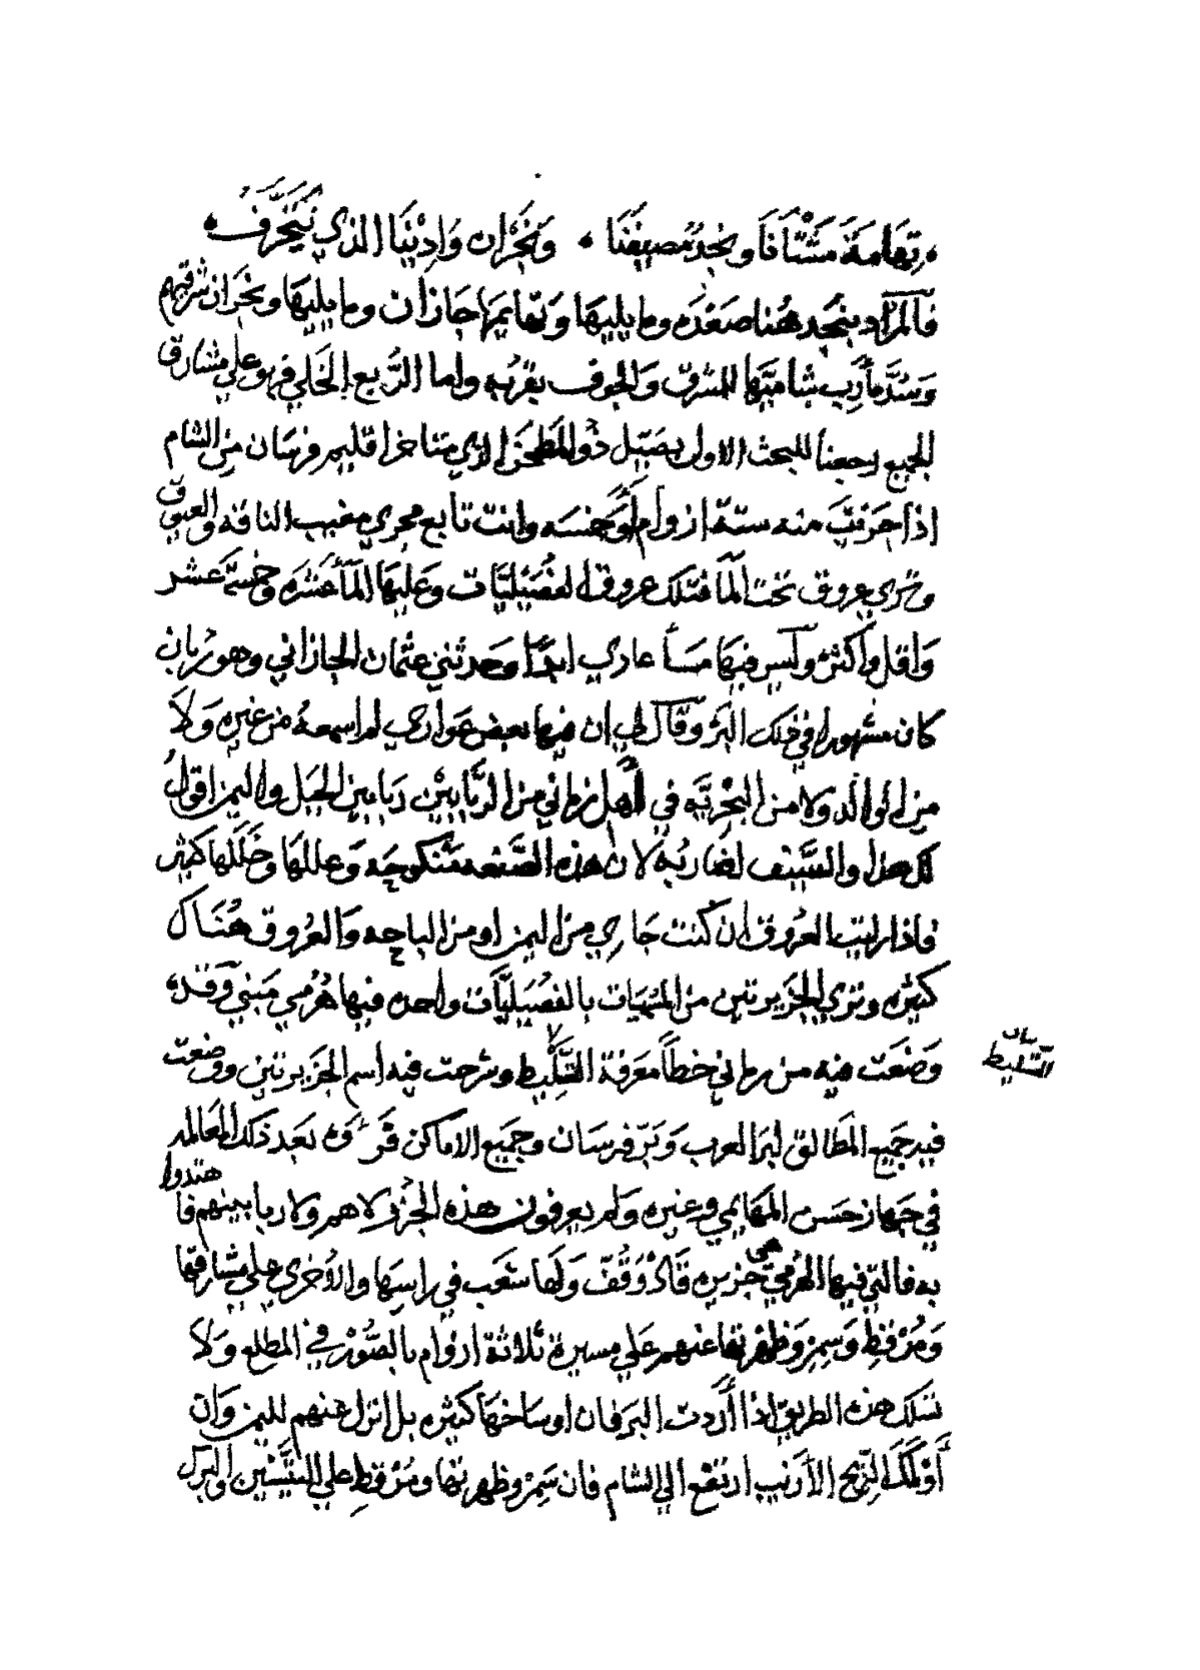 تهامة مشتانا ونجد مصيفنا • ونجران وادينا الذي نتخرف •
فالمراد بنجد هنا صعده وما يليها وتهايمها جازان وما يليها ونجران شرقيهم
وسد مأرب شاميها للشرق والجوف بقربه واما الربع الخلي فهو علي مشارق
الجميع رجعنا للبحث الاول بصبيل ذو الذي متناخرا اقليم فرسان من الشام
اذا جريت منه ستة ازوام او خمسه وانت تابع مجري مغيب الناقه والعيوق
وتري عروق تحت الما فتلك عروق الفصيليات وعليها الما عشره وخمسة عشر
واقل واكثر وليس فيها مسا عادي ابدا وحدثني عثمان الجازاني وهو ربان
كان مشهورا في ذلك البر وقال لي ان فيها بعض عوارض لم اسمعه من غيره ولا
من الوالد ولا من البحرية في أهل زماني من الربابين ربابين الجبل واليمن اقول
كل هذا والسيف لضاربه لان هذه الصنعه وعللها وخللها كثير
فاذا رايت العروق ان كنت جاري من اليمن او من الباحه والعروق هناك
كثيره وتري الجزيرتين من المسميات بالفصيليات واحده فيها هرمي مبني وقد
وضعت فيه من زماني خطا معرفة التسليط وشرحت فيه اسم الجزيرتين ووضعت
فيه جميع المطالق لبر العرب وبر فرسان وجميع الاماكن بعد ذلك المعالمه
في جهاز حسن المهايمي وغيره ولم يعرفون هذه الجزر لا هم ولا ربابينهم فاهتدوا
به فالتي فيها الهرمي هي جزيره قاد وقف ولها شعب في راسها والاخري علي مشارقها
ومرقط وسمر وظهرتها عنهم علي مسيرة ثلاثة ازوام بالصور في المطلع ولا
تسلك هذه الطريق اذا أردت البر فان اوساخها كثيره بل انزل عنهم لليمن وان
أولمك الريح الأرنب ارتفع الي الشام فان سمر وظهرتها ومرقط علي والبرك
بيان
التسليط